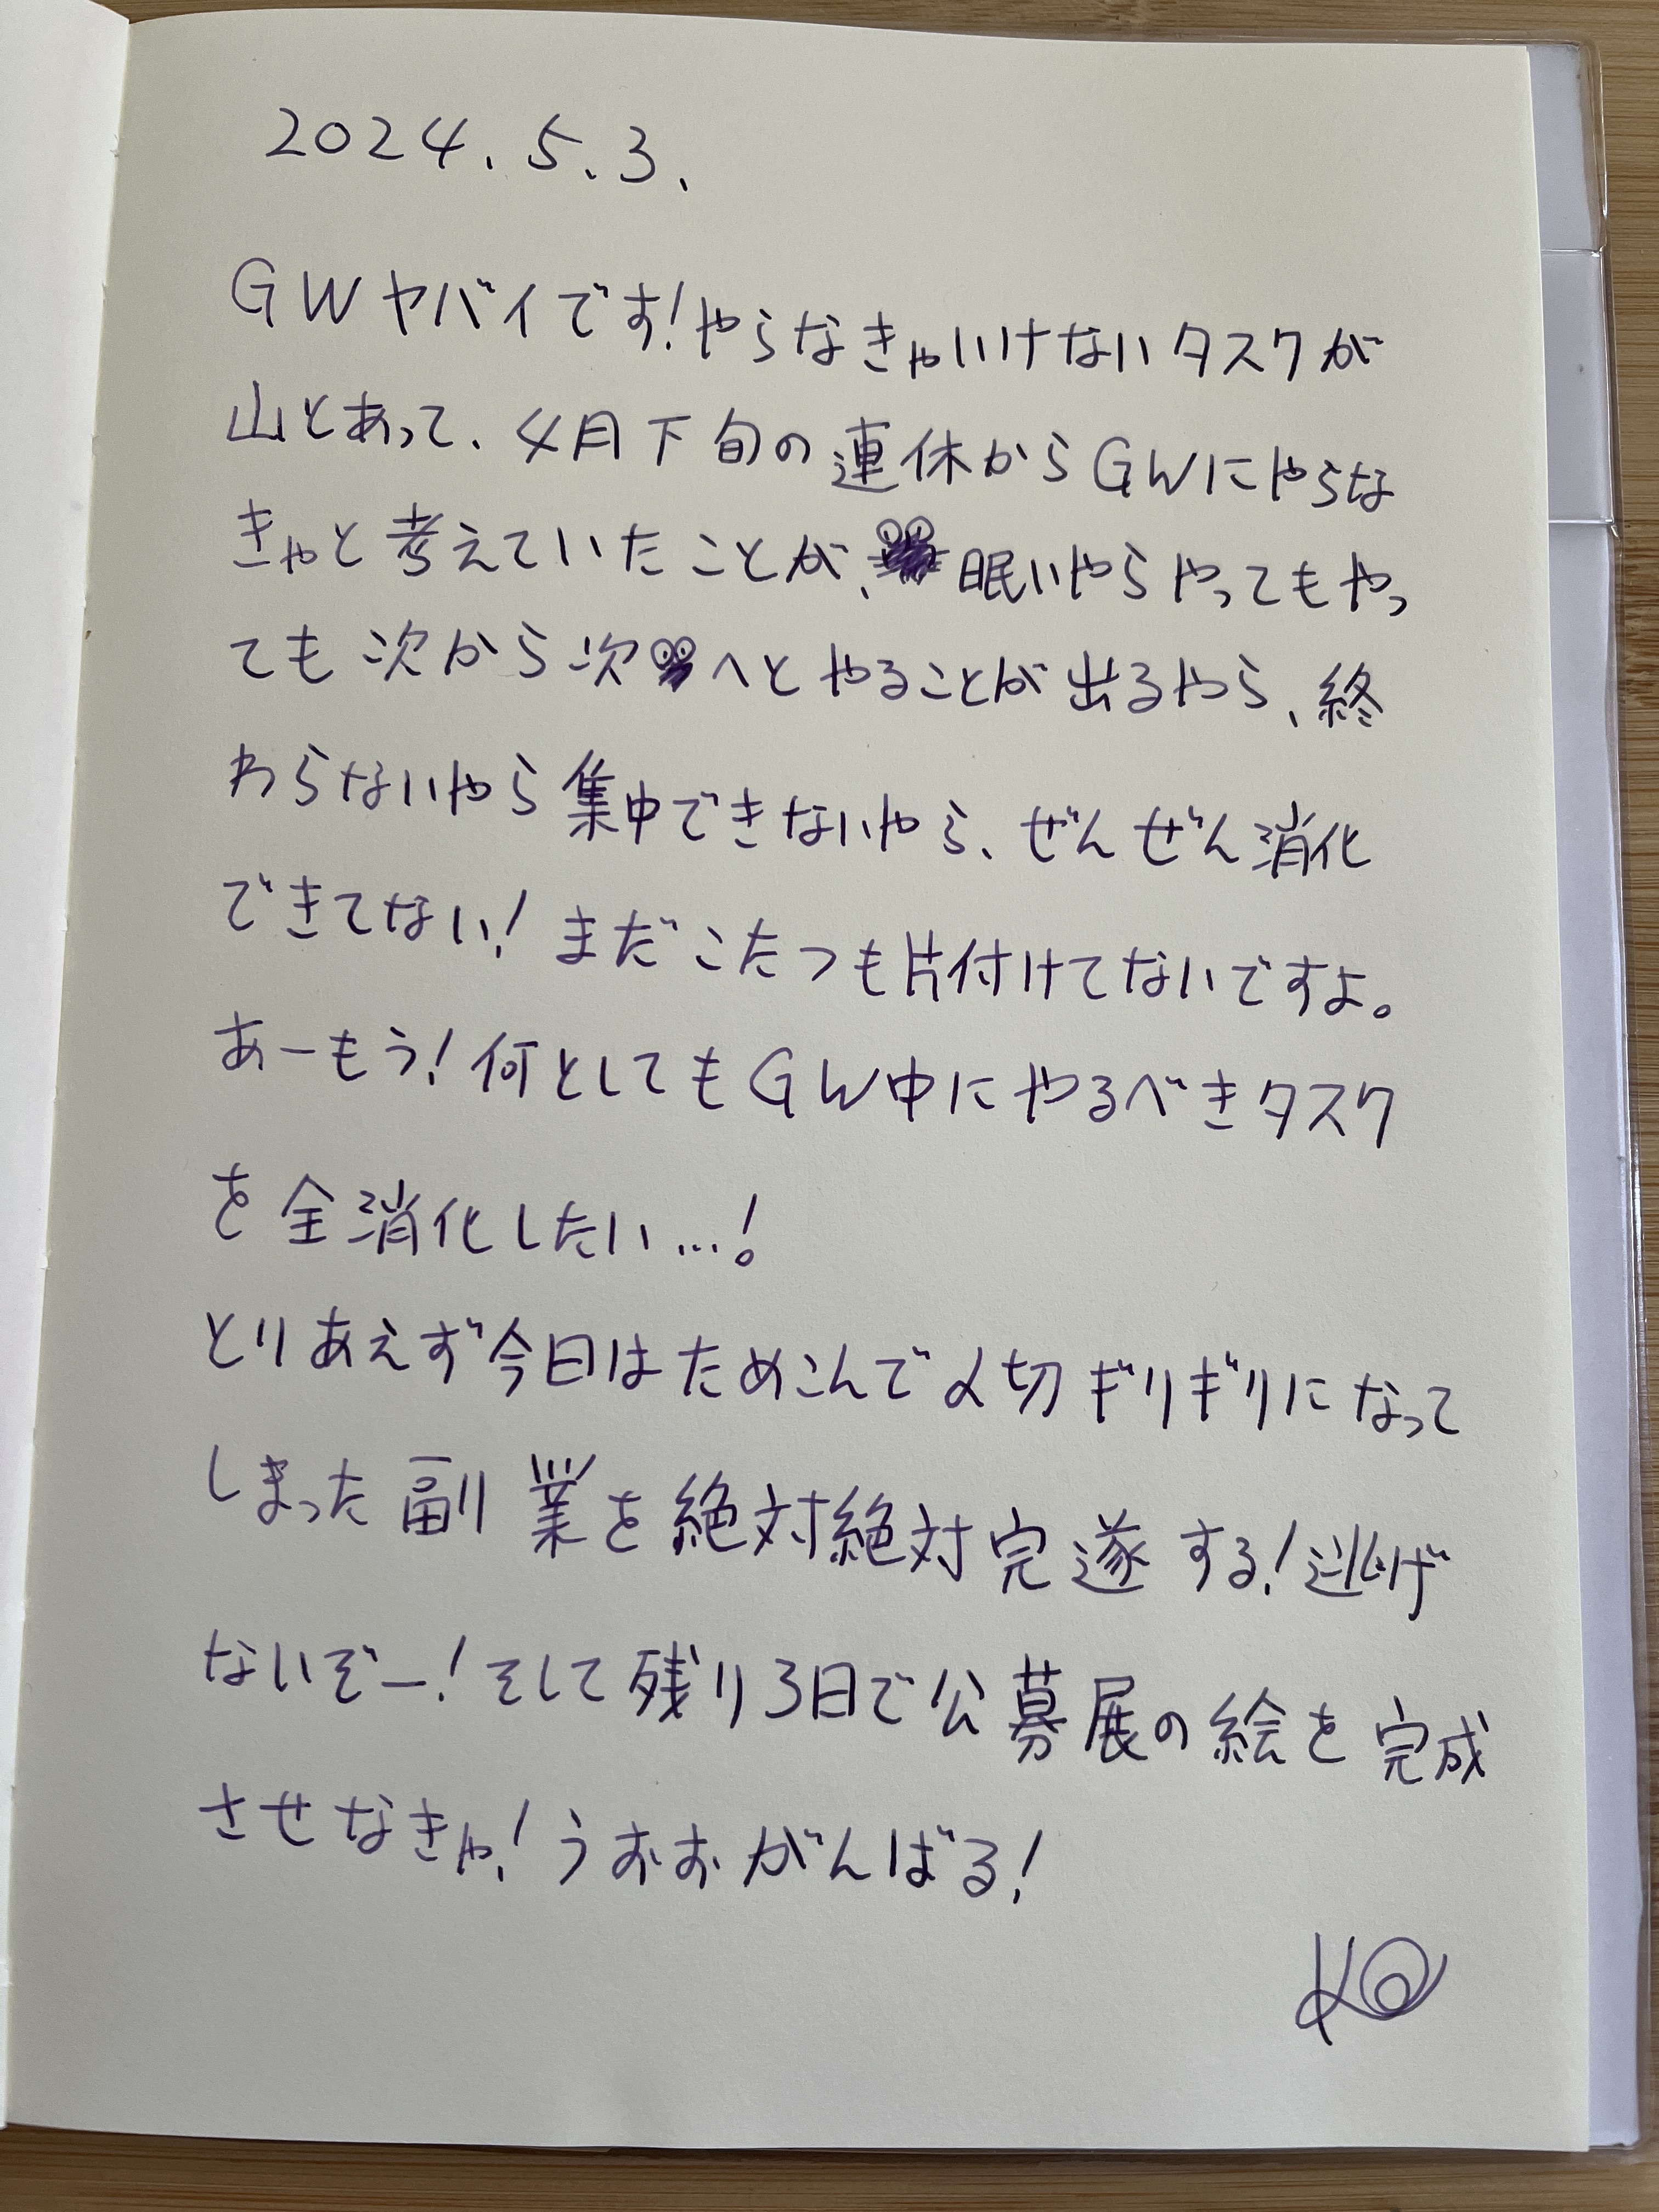 2024.5.3.
GWヤバイです!やらなきゃいけないタスクが
山とあって、4月下旬の連休からGWにやらな
きゃと考えていたことが、眠いやらやってもやっ
ても次から次へとやることが出るやら、終
わらないやら集中できないやら、ぜんぜん消化
できてない!まだこたつも片付けてないですよ。
あーもう!何としてもGW中にやるべきタスク
を全消化したい…!
とりあえず今日はためこんで〆切ギリギリになって
しまった副業を絶対絶対完遂する!逃げ
ないぞー!そして残り3日で公募展の絵を完成
させなきゃ!うおおがんばる!